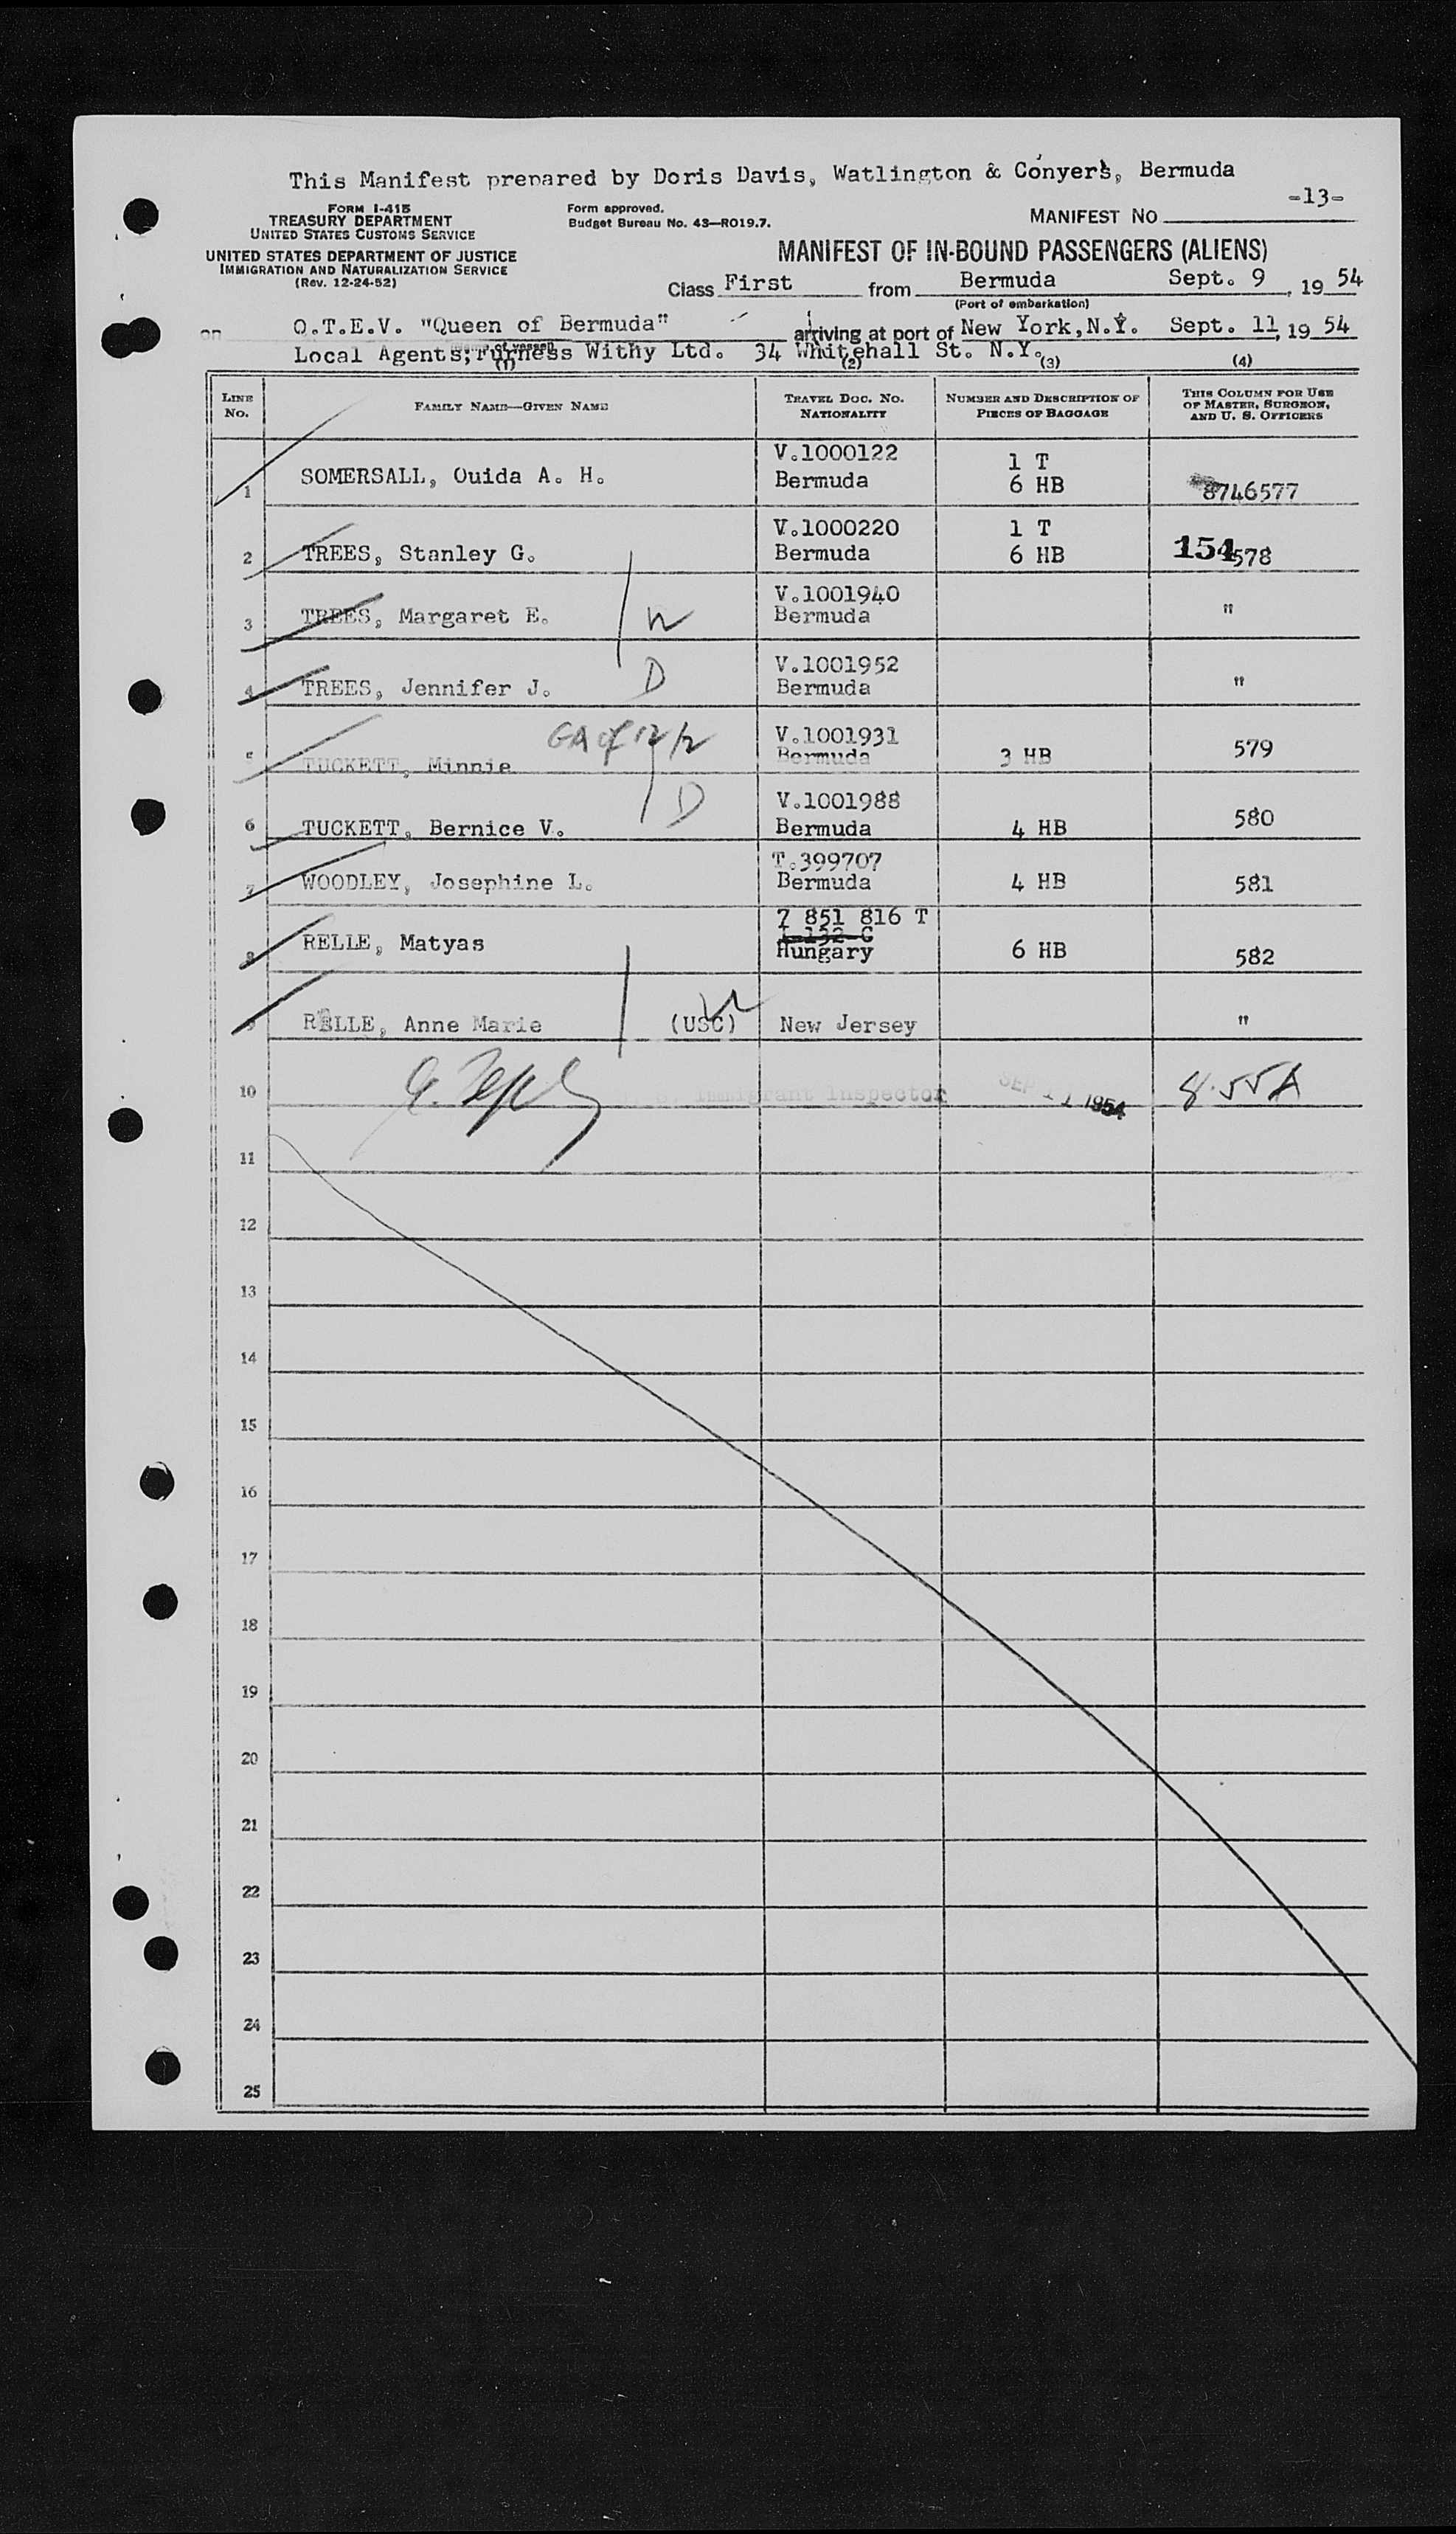 This Manifest prepared by Doris Davis, Watlington & Conyers, Bermuda
-13-
FORM I-415
TREASURY DEPARTMENT
UNITED STATES CUSTOMS SERVICE
UNITED STATES DEPARTMENT OF JUSTICE
IMMIGRATION AND NATURALIZATION SERVICE
(Rev. 12-24-52)
Form approved.
Budget Bureau No. 43—RO19.7.
MANIFEST NO
MANIFEST OF IN-BOUND PASSENGERS (ALIENS)
Class First from Bermuda Sept. 9, 19 54
(Port of embarkation)
on Q.T.E.V. "Queen of Bermuda" arriving at port of New York, N.Y. Sept. 11, 19 54
Local Agents; Furness Withy Ltd. 34 Whitehall St. N.Y.
(1) (2) (3) (4)
LINE NO. FAMILY NAME—GIVEN NAME TRAVEL DOC. NO. NATIONALITY NUMBER AND DESCRIPTION OF PIECES OF BAGGAGE THIS COLUMN FOR USE OF MASTER, SURGEON, AND U. S. OFFICERS
V.1000122 1 T
1 SOMERSALL, Ouida A. H. Bermuda 6 HB 8746577
V.1000220 1 T
2 TREES, Stanley G. Bermuda 6 HB 154 578
V.1001940
3 TREES, Margaret E. W Bermuda "
V.1001952
4 TREES, Jennifer J. D Bermuda "
V.1001931
5 TUCKETT, Minnie Bermuda 3 HB 579
V.1001988
6 TUCKETT, Bernice V. D Bermuda 4 HB 580
T.399707
7 WOODLEY, Josephine L. Bermuda 4 HB 581
7 851 816 T
8 RELLE, Matyas Hungary 6 HB 582
9 RELLE, Anne Marie (USC) W New Jersey "
10 Immigrant Inspector SEP 11 1954 8.55A
11
12
13
14
15
16
17
18
19
20
21
22
23
24
25